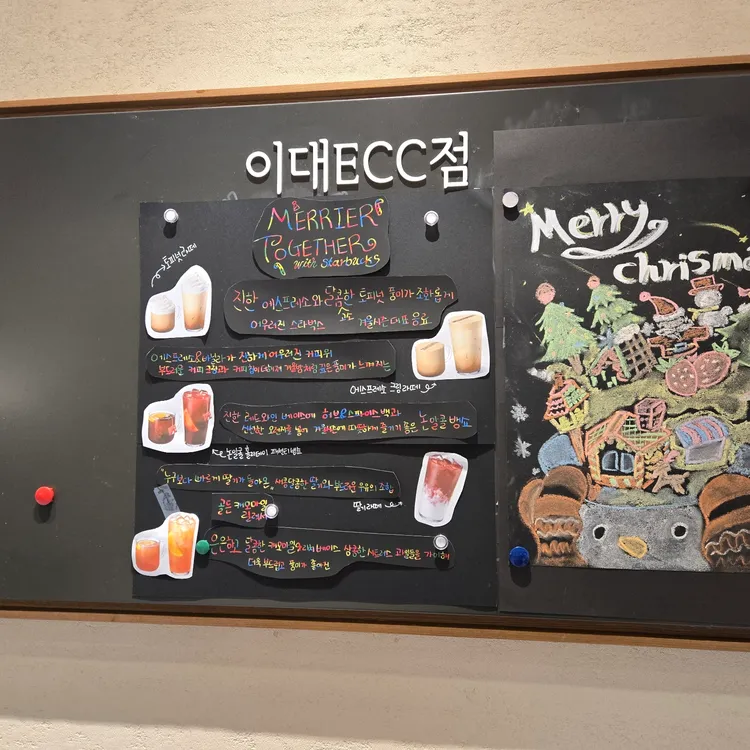 이대ECC점
MERRIER
TOGETHER
with Starbucks
토피넛라떼
진한 에스프레소와 달콤한 토피넛 풍미가 조화롭게
어우러진 스타벅스 겨울시즌 대표 음료
에스프레소와 바닐라가 진하게 어우러진 커피위
부드러운 커피 크림과 풍미가 느껴지는
에스프레소 크림라떼
진한 레드와인 베이스에 허브&스파이스 백과
신선한 오렌지를 넣어 따뜻하게 즐기기 좋은 논알콜 뱅쇼
논알콜
누구보다 빠르게 딸기가 돌아옴, 새콤달콤한 딸기와 부드러운 우유의 조합
딸기라떼
골든 캐모마일
릴렉서
은은하고 달콤한 캐모마일 베이스 상큼한
더욱 부드럽고 풍미가 좋아진
Merry
chrisma